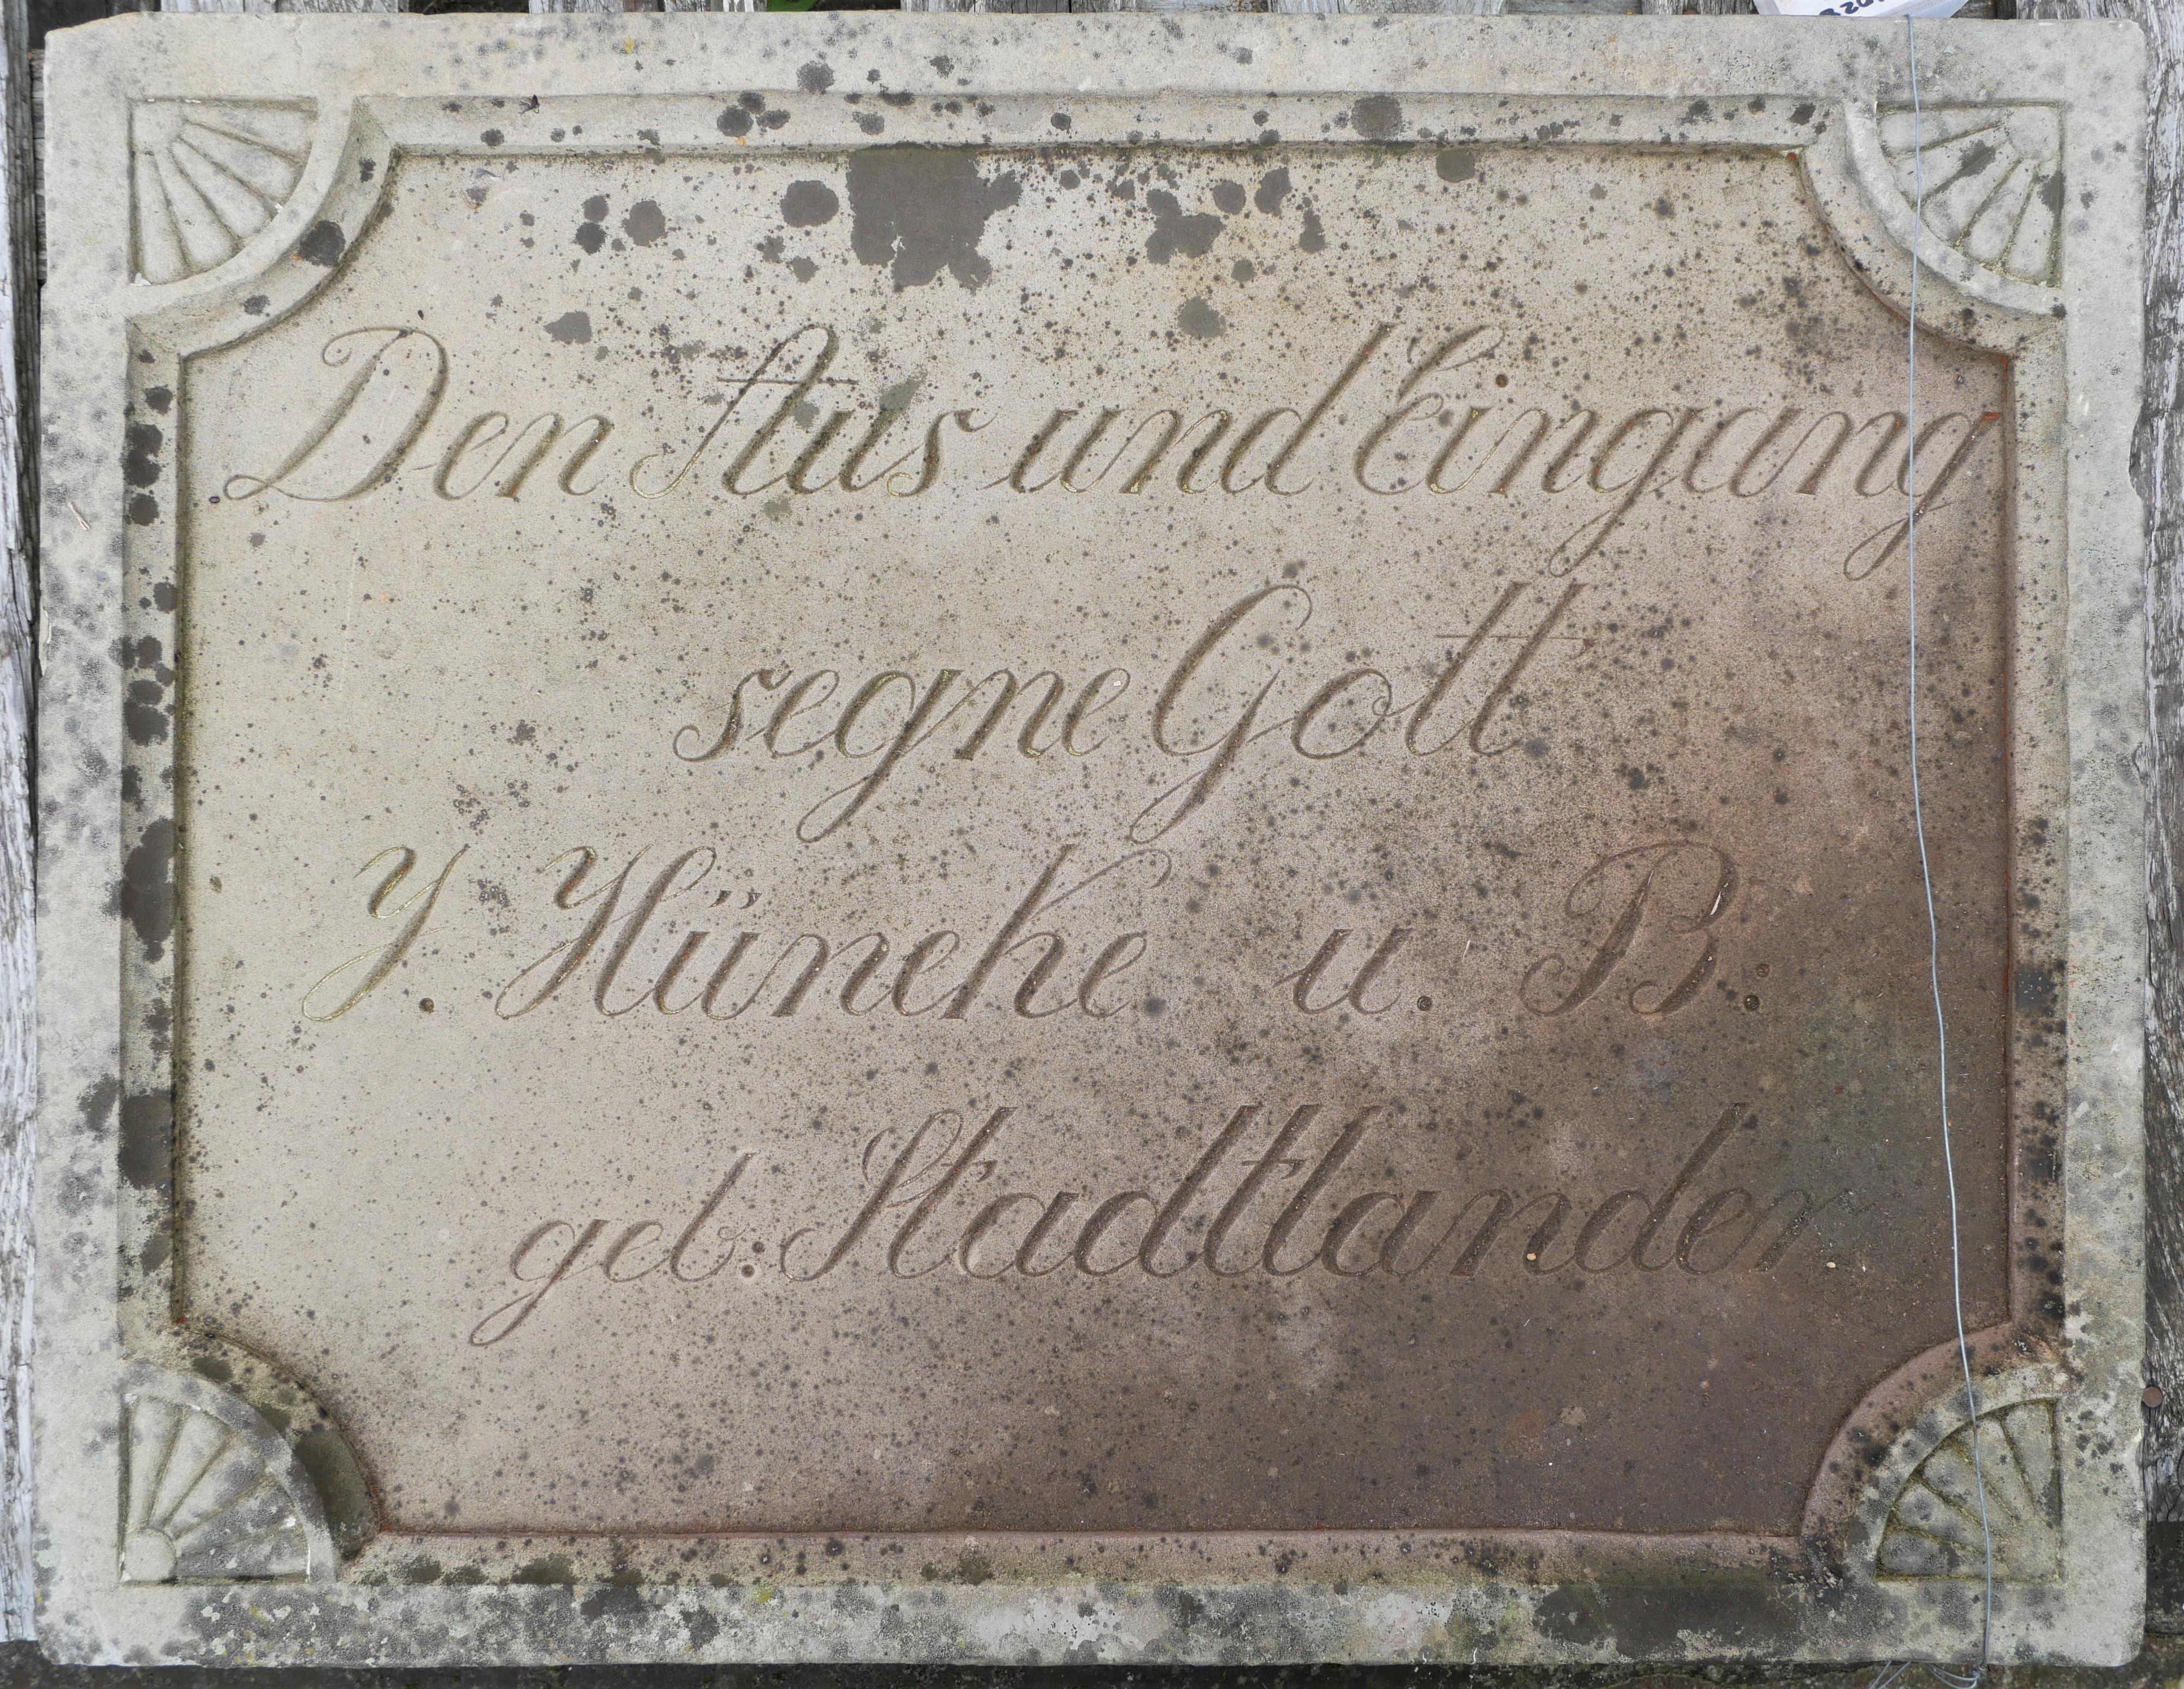 Den Aus und Eingang
segne Gott
J. Hüneke u. B.
geb: Stadtlander